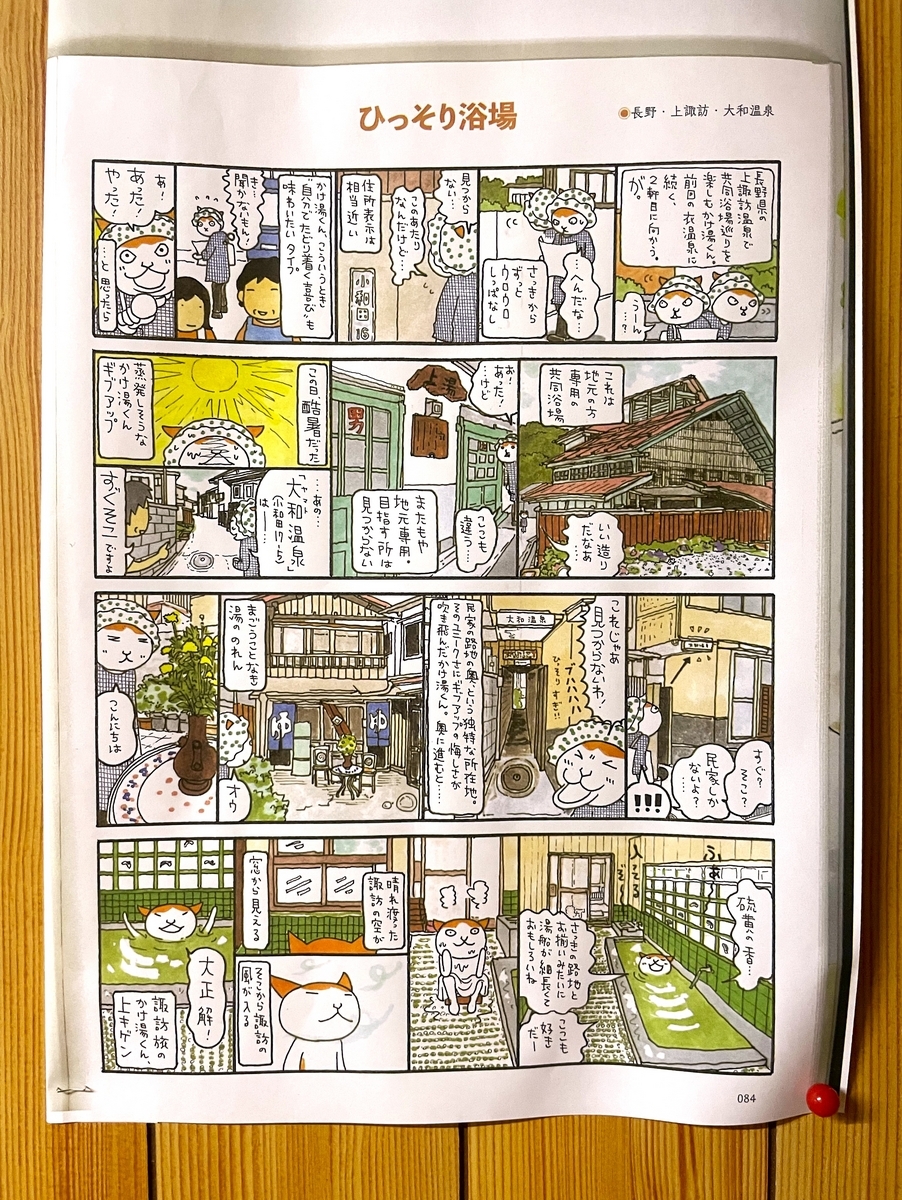 ひっそり浴場
●長野・上諏訪・大和温泉
長野県の
上諏訪温泉で
共同浴場巡りを
楽しむかけ湯くん。
前回の衣温泉に
続く、
2軒目に向かう。
が。
うーん
…?
…へんだな…
さっきから
ずっと
ウロウロ
しっぱなし
見つから
ない…
このあたり
なんだけど…
住所表示は
相当近い
小和田
16
かけ湯くん、こういうとき
"自分でたどり着く喜び"も
味わいたいタイプ
き…
聞かないもん!
あ!
あった!
やった!
…と思ったら
これは
地元の方
専用の
共同浴場
いい造り
だなあ
お!
あった!
…けど
上湯
男
ここも
違う…
またもや
地元専用。
目指す所は
見つからない
この日、酷暑だった
蒸発しそうな
かけ湯くん
ギブアップ
…あの…
「大和温泉」
ヤマト
(小和田17-5)
は…
すぐそこですよ
すぐ?
そこ?
民家しか
ないよ?
!!!
これじゃあ
見つからないわ!
ブハハハハ
ひっそりすぎ!!
大和温泉
民家の路地の奥、という独特な所在地。
そのユニークさにギブアップの悔しさが
吹き飛んだかけ湯くん。奥に進むと…
まごうことなき
湯ののれん
ゆ
ゆ
オウ
こんにちは
硫黄の香…
ふぁ〜
さっきの路地と
お揃いみたいに
湯船が細長くて
おもしろいね
ここも
好き
だー
晴れ渡った
諏訪の空が
窓から見える
そこから諏訪の
風が入る
大正解!
諏訪旅の
かけ湯くん、
上キゲン
084